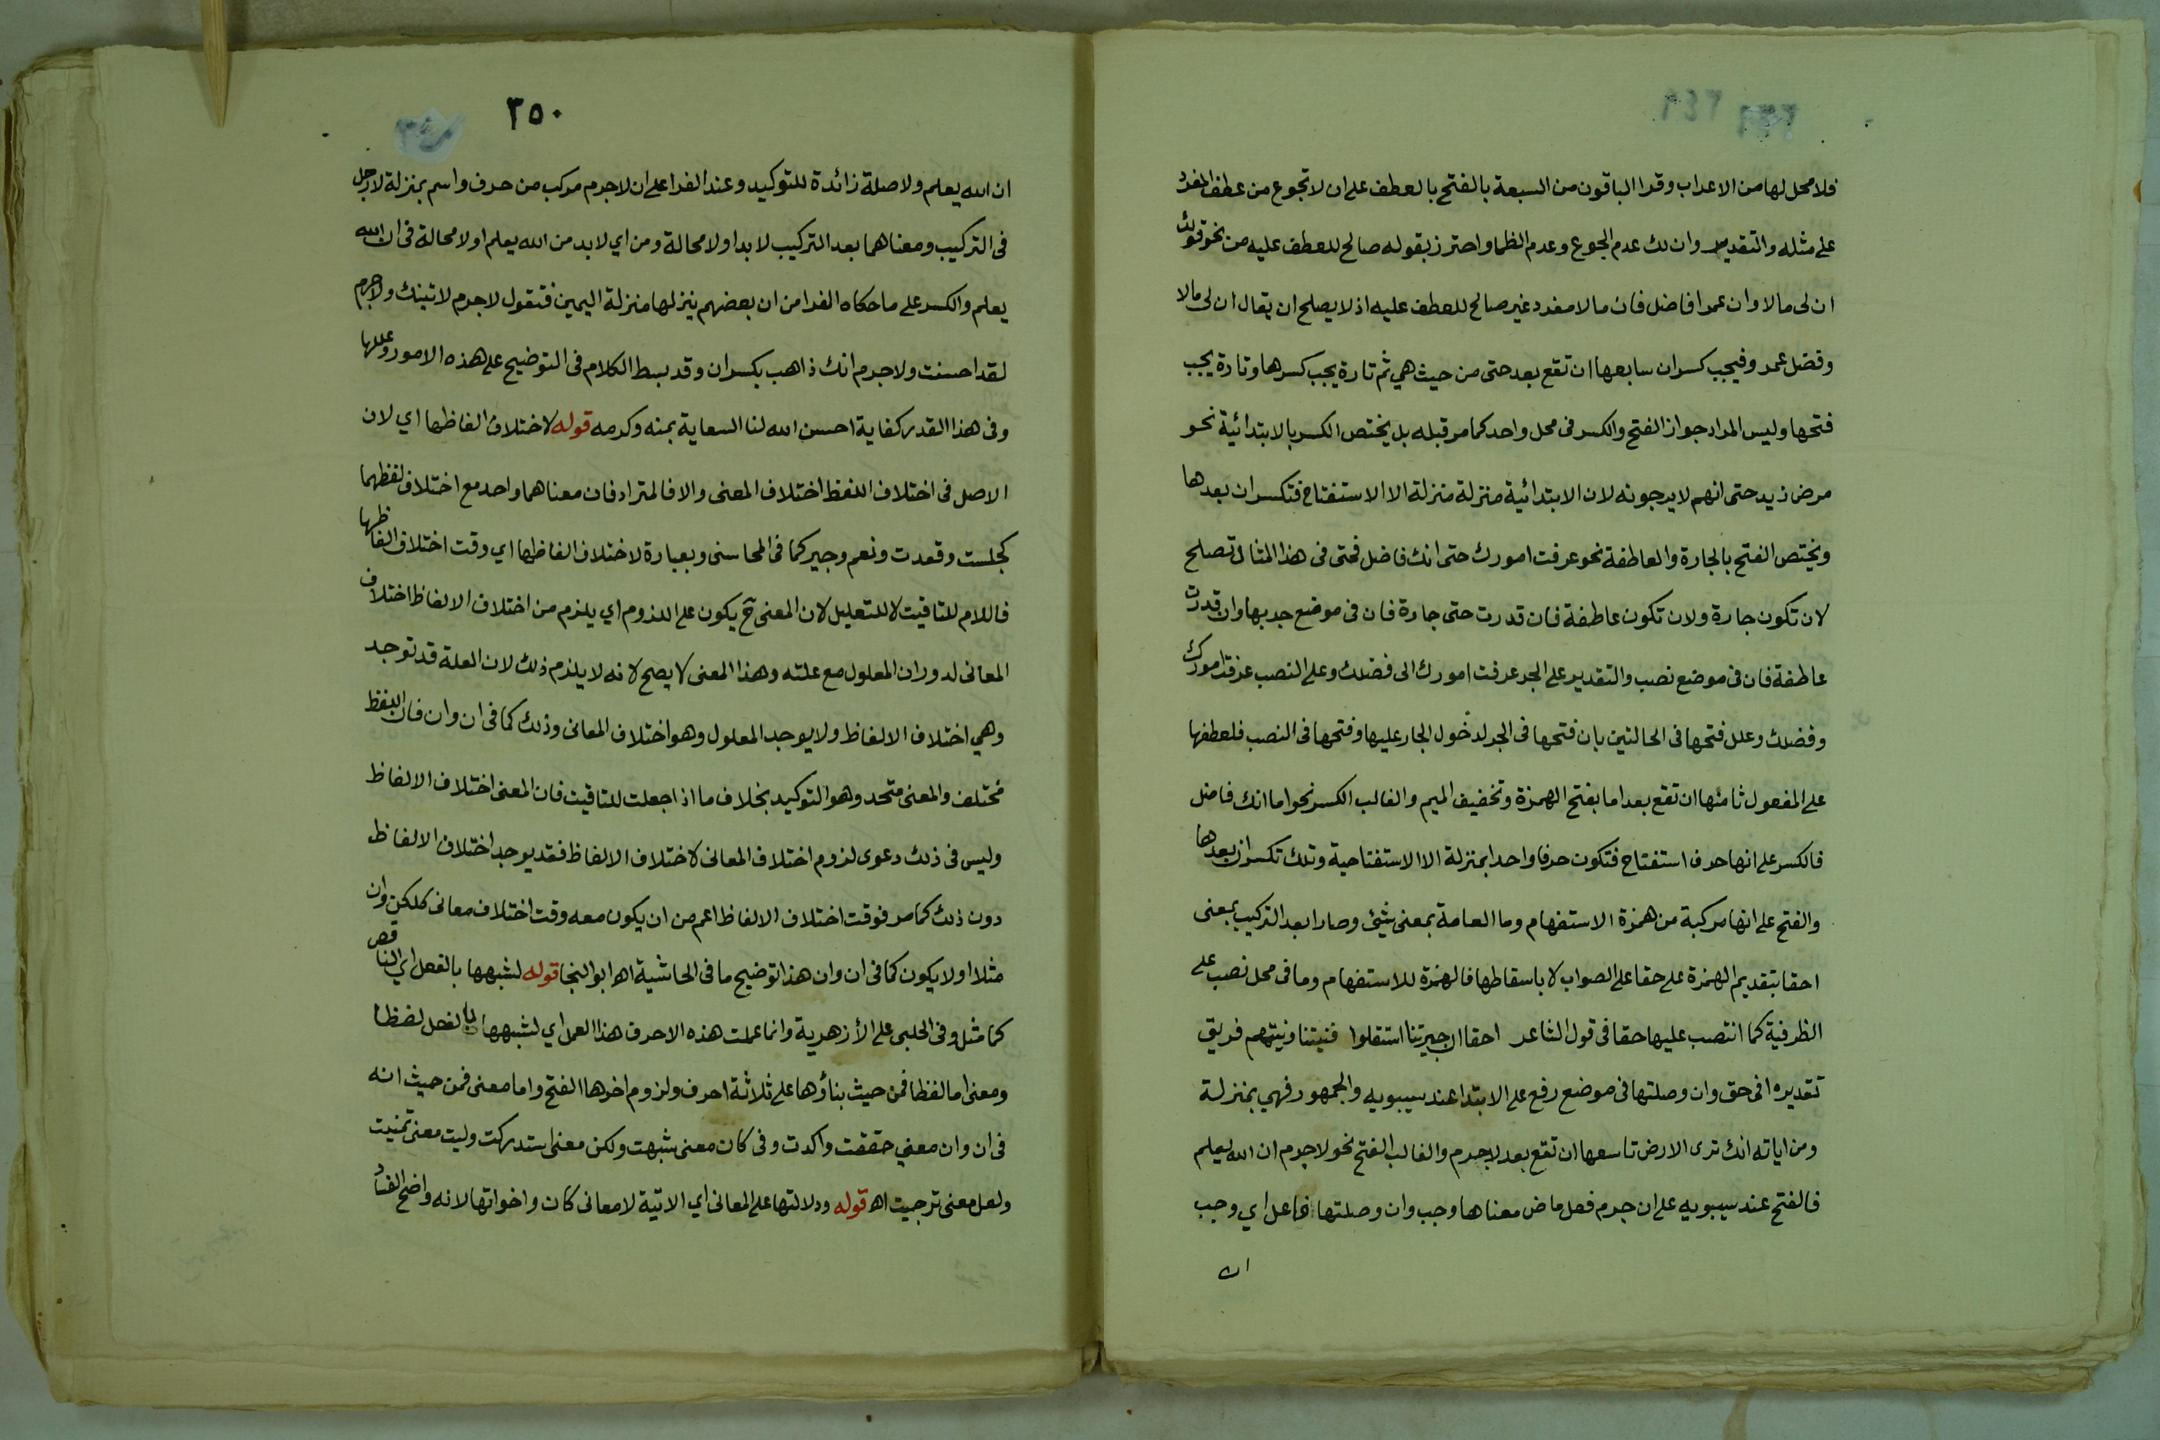 ٣٤٩
فلا محل لها من الاعراب وقرا الباقون من السبعة بالفتح بالعطف على ان لا تجوع من عطف المفرد
على مثله والتقدير وان لك عدم الجوع وعدم الظما واحترز بقوله صالح للعطف عليه من نحو قولك
ان لى مالا وان عمرا فاضل فان مالا مفرد غير صالح للعطف عليه اذ لا يصلح ان يقال ان لى مالا
وفضل عمرو فيجب كسران سابعها ان تقع بعد حتى من حيث هي ثم تارة يجب كسرها وتارة يجب
فتحها وليس المراد جواز الفتح والكسر فى محل واحد كما مر قبله بل يختص الكسر بالابتدائية نحو
مرض زيد حتى انهم لا يرجونه لان الابتدائية منزلة منزلة الا الاستفتاح فتكسران بعدها
ويختص الفتح بالجارة والعاطفة نحو عرفت امورك حتى انك فاضل فحتى فى هذا المثال تصلح
لان تكون جارة ولان تكون عاطفة فان قدرت حتى جارة فان فى موضع جر بها وان قدرت
عاطفة فان فى موضع نصب والتقدير على الجر عرفت امورك الى فضلك وعلى النصب عرفت امورك
وفضلك وعلل فتحها فى الحالتين بان فتحها فى الجر لدخول الجار عليها وفتحها فى النصب فلعطفها
على المفعول ثامنها ان تقع بعد اما بفتح الهمزة وتخفيف الميم والغالب الكسر نحو اما انك فاضل
فالكسر على انها حرف استفتاح فتكون حرفا واحدا بمنزلة الا الاستفتاحية وتلك تكسران بعدها
والفتح على انها مركبة من همزة الاستفهام وما العامة بمعنى شيئ وصارا بعد التركيب بمعنى
احقا بتقديم الهمزة على حقا على الصواب لا باسقاطها فالهمزة للاستفهام وما فى محل نصب على
الظرفية كما انتصب عليها حقا فى قول الشاعر احقا ان جيرتنا استقلوا فنيتنا ونيتهم فريق
تقديره افى حق وان وصلتها فى موضع رفع على الابتدا عند سيبويه والجمهور فهي بمنزلة
ومن اياته انك ترى الارض تاسعها ان تقع بعد لاجرم والغالب الفتح نحو لاجرم ان الله يعلم
فالفتح عند سيبويه على ان جرم فعل ماض معناها وجب وان وصلتها فاعل اي وجب
ان
٣٥٠
ان الله يعلم ولا صلة زائدة للتوكيد وعند الفرا على ان لاجرم مركب من حرف واسم بمنزلة لا رجل
فى التركيب ومعناهما بعد التركيب لا بد او لا محالة ومن اي لا بد من الله يعلم او لا محالة فى ان الله
يعلم والكسر على ما حكاه الفرا من ان بعضهم ينزلها منزلة اليمين فتقول لاجرم لاتينك ولاجرم
لقد احسنت ولاجرم انك ذاهب بكسران وقد بسط الكلام فى التوضيح على هذه الامور وعللها
وفى هذا القدر كفاية احسن الله لنا السعاية بمنه وكرمه قوله لاختلاف الفاظها اي لان
الاصل فى اختلاف اللفظ اختلاف المعنى والا فالمترادفان معناهما واحد مع اختلاف لفظهما
كجلست وقعدت ونعم وجير كما فى المحاسنى وبعبارة لاختلاف الفاظها اي وقت اختلاف الفاظها
فاللام للتاقيت لا للتعليل لان المعنى ح يكون على اللزوم اي يلزم من اختلاف الالفاظ اختلاف
المعانى لدوران المعلول مع علته وهذا المعنى لا يصح لانه لا يلزم ذلك لان العلة قد توجد
وهي اختلاف الالفاظ ولا يوجد المعلول وهو اختلاف المعانى وذلك كما فى ان وان فان اللفظ
مختلف والمعنى متحد وهو التوكيد بخلاف ما اذا جعلت للتاقيت فان المعنى اختلاف الالفاظ
وليس فى ذلك دعوى لزوم اختلاف المعانى لاختلاف الالفاظ فقد يوجد اختلاف الالفاظ
دون ذلك كما مر فوقت اختلاف الالفاظ اعم من ان يكون معه وقت اختلاف معانى كلكن وان
مثلا او لا يكون كما فى ان وان هذا توضيح ما فى الحاشية اهـ ابو النجا قوله لشبهها بالفعل اي الناقص
كما مثل وفى الحلبى على الأزهرية وانما عملت هذه الاحرف هذا العمل اي لشبهها بالفعل لفظا
ومعنى اما لفظا فمن حيث بناؤها على ثلاثة احرف ولزوم اخرها الفتح واما معنى فمن حيث انه
فى ان وان معني حققت واكدت وفى كان معنى شبهت ولكن معنى استدركت وليت معنى تمنيت
ولعل معنى ترجيت اهـ قوله ودلالتها على المعانى اي الاتية لا معانى كان واخواتها لانه واضح الفساد